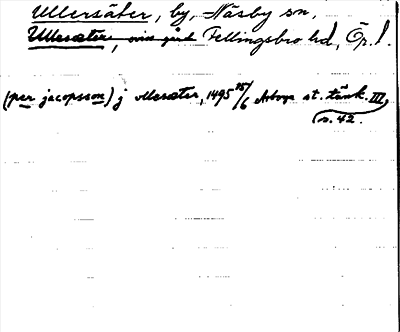 Ullersäter, by, Näsby sn,
Ullersæter, viss gård Fellingsbro hd, Ör. l.
(per jacopsson) j vllersæter, 1495 25/6 Arboga st. tänk. III,
s. 42.